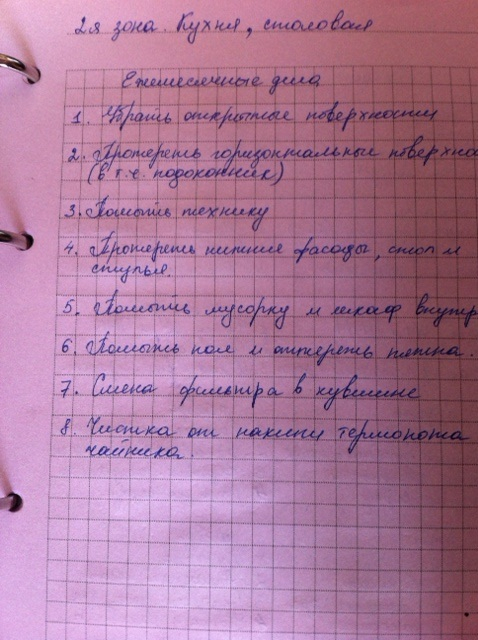 2я зона. Кухня, столовая
Ежемесячные дела
1. Убрать открытые поверхности
2. Протереть горизонтальные поверхнос
(в т.ч. подоконник)
3. Помыть технику
4. Протереть нижние фасады, стол и
стулья.
5. Помыть мусорку и шкаф внутр
6. Помыть пол и оттереть пятна.
7. Смена фильтра в кувшине
8. Чистка от накипи термопота
чайника.